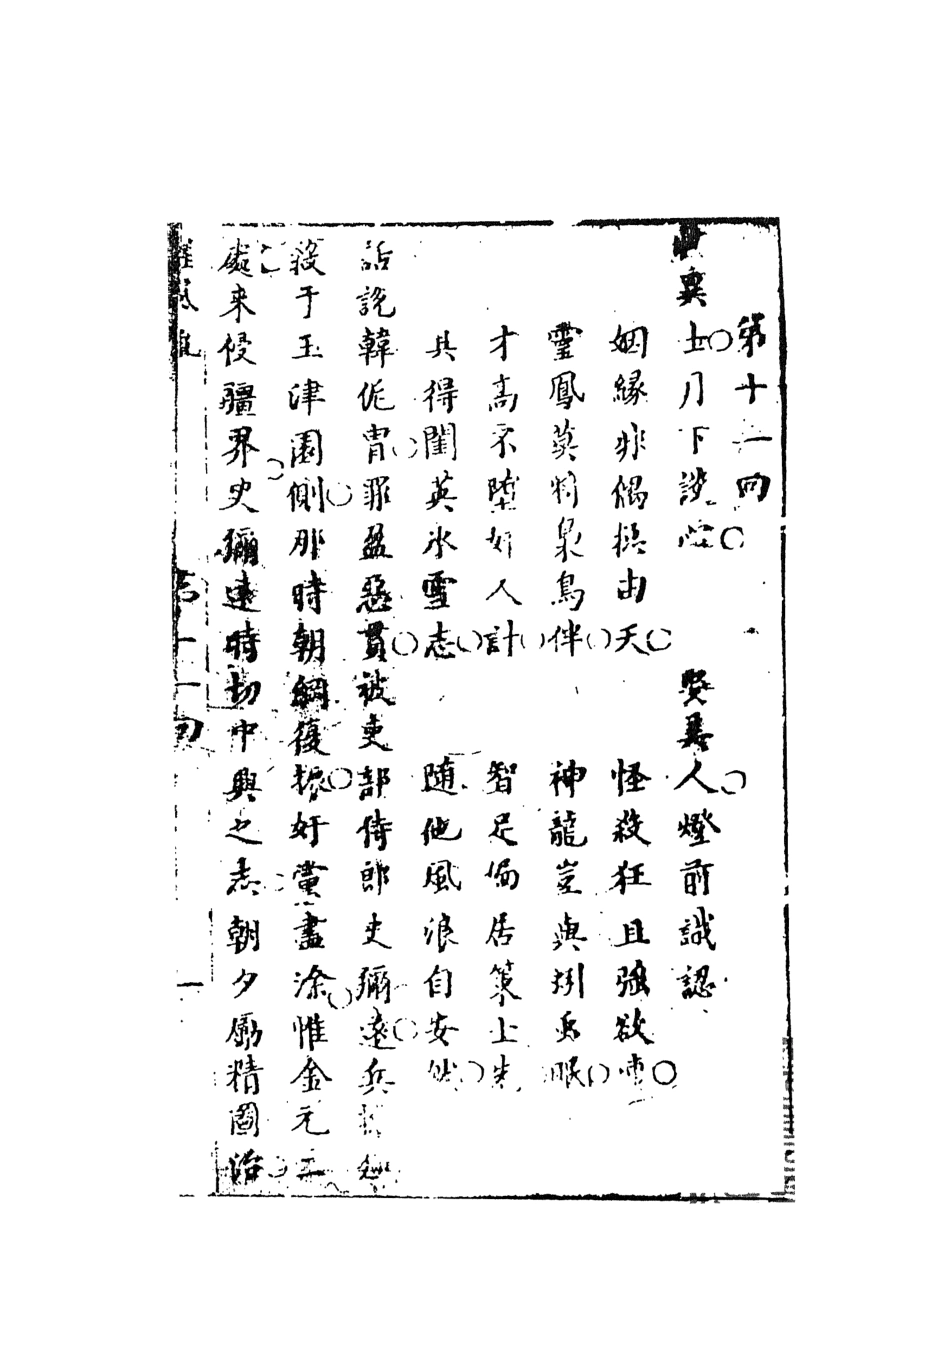 第十一回
異士月下談心 賢美人燈前識認
姻緣非偶揔由天 怪殺狂且強欲
靈鳳莫將梟鳥伴 神龍豈與蚓為眠
才高不墮奸人計 智足偏居策上先
具得閨英氷雪志 随他風浪自安然
話說韓侂冑罪盈惡貫被吏部侍郎史彌遠兵
殺于玉津園側那時朝綱復振奸黨盡涂惟金元二
處来侵疆界史彌遠時切中興之志朝夕勵精圖治
十一回
一